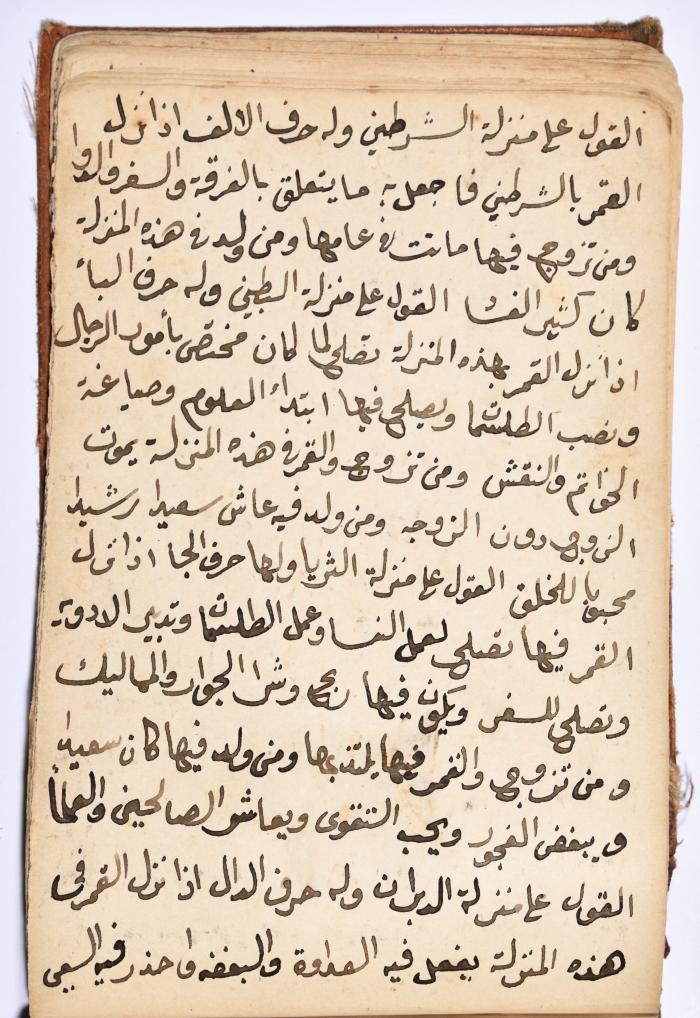 القول على منزلة الشرطين وله حرف الالف اذا نزل
القمر بالشرطين فاجعل به ما يتعلق بالفرقة والسفر والدوا
ومن تزوج فيها ماتت في عامها ومن ولد في هذه المنزلة
كان كثير القول على منزلة البطين وله حرف البأ
اذا نزل القمر بهذه المنزلة تصلح لما كان مختص بأمور الرجال
ونصب الطلسمات ويصلح فيها ابتداء العلوم وصياغة
الخواتم والنقش ومن تزوج والقمر في هذه المنزلة يموت
الزوج دون الزوجه ومن ولد فيه عاش سعيدا رشيدا
محبوبا للخلق القول على منزلة الثريا ولها حرف الجا اذا نزل
القمر فيها تصلح لعمل النسا وعمل الطلسمات وتدبير الادوية
وتصلح للسفر ويكون فيها ربح وشرا الجوار والمماليك
ومن تزوج والقمر فيها يلتذ بها ومن ولد فيها كان سعيدا
ويبغض الفجور ويحب التقوى ويعاشر الصالحين والعلمأ
القول على منزلة الدبران وله حرف الدال اذا نزل القمر في
هذه المنزلة يفعل فيه العداوة والبغضه واحذر فيه السعي